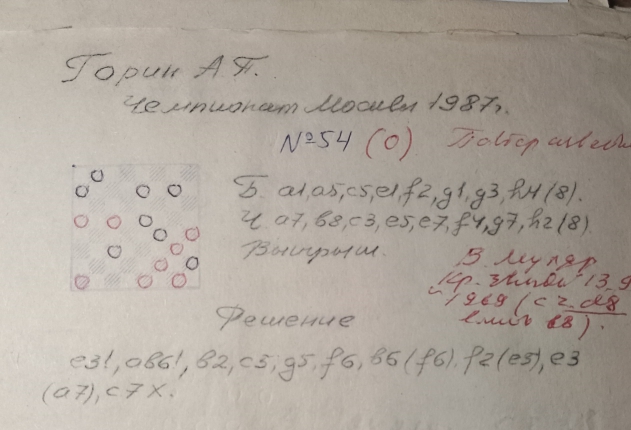 Горин А.П.
Чемпионат Москвы 1987г.
№54 (0) Повтор
Б. a1, a5, c5, e1, f2, g1, g3, h4 (8).
Ч. a7, b8, c3, e5, e7, f4, g7, h2 (8)
Выигрыш.
В. Мупяр
Кр. 13.9
1969 (с ч. d8
вместо b8).
Решение
e3!, ab6!, b2, c5, g5, f6, b6 (f6), f2 (e5), e3
(a7), c7 X.